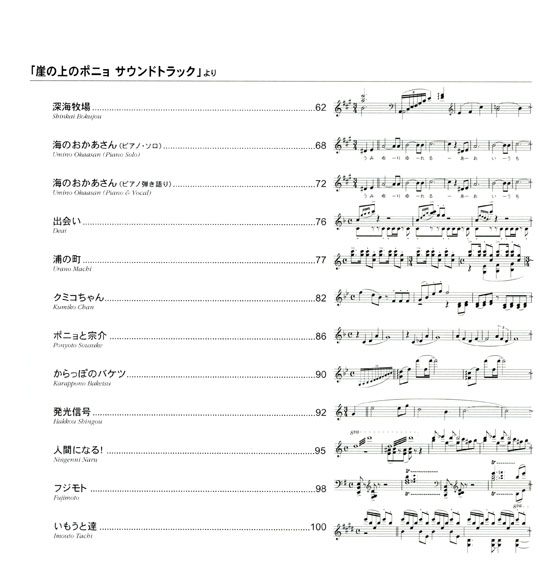 「崖の上のポニョ サウンドトラック」より
深海牧場 62
Shinkai Bokujou
海のおかあさん（ピアノ・ソロ） 68
Umino Okaasan (Piano Solo)
うみ ゆ りゆ れる あお い うち
海のおかあさん（ピアノ弾き語り） 72
Umino Okaasan (Piano & Vocal)
うみ ゆ りゆ れる あお い うち
出会い 76
Deai
浦の町 77
Urano Machi
クミコちゃん 82
Kumiko Chan
ポニョと宗介 86
Ponyoto Sousuke
からっぽのバケツ 90
Karappono Baketsu
発光信号 92
Hakkou Shingou
人間になる! 95
Ningenni Naru
フジモト 98
Fujimoto
いもうと達 100
Imouto Tachi